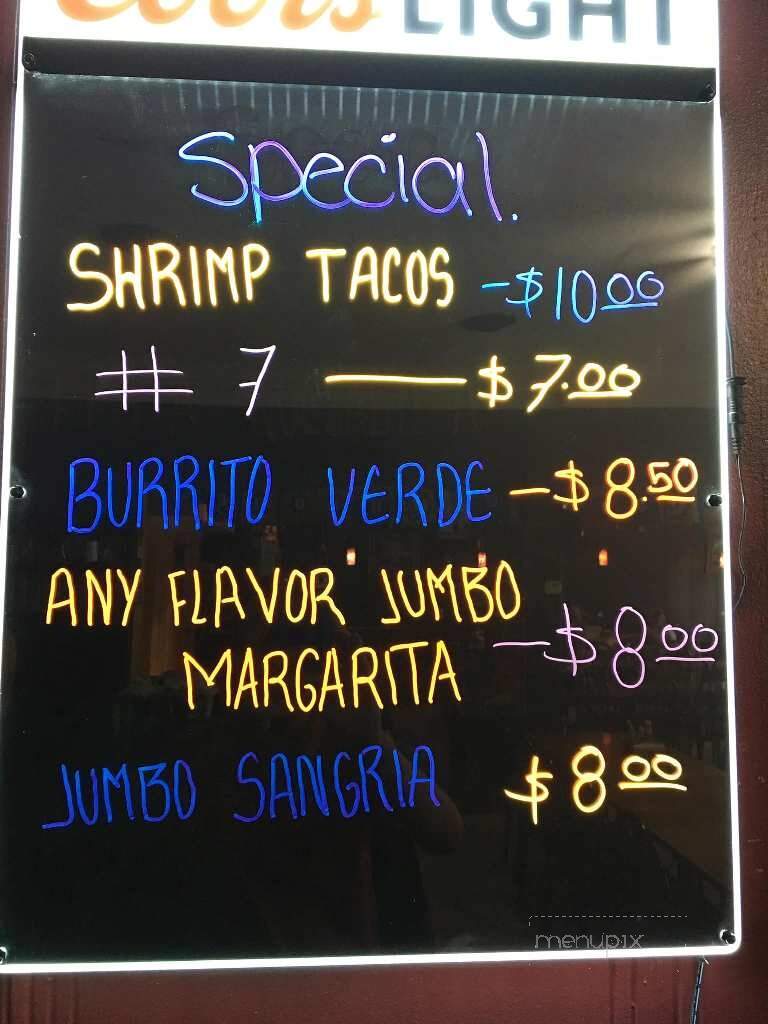 Coors LIGHT
Special.
SHRIMP TACOS -$10.00
# 7 — $7.00
BURRITO VERDE -$8.50
ANY FLAVOR JUMBO
MARGARITA -$8.00
JUMBO SANGRIA $8.00
menupix